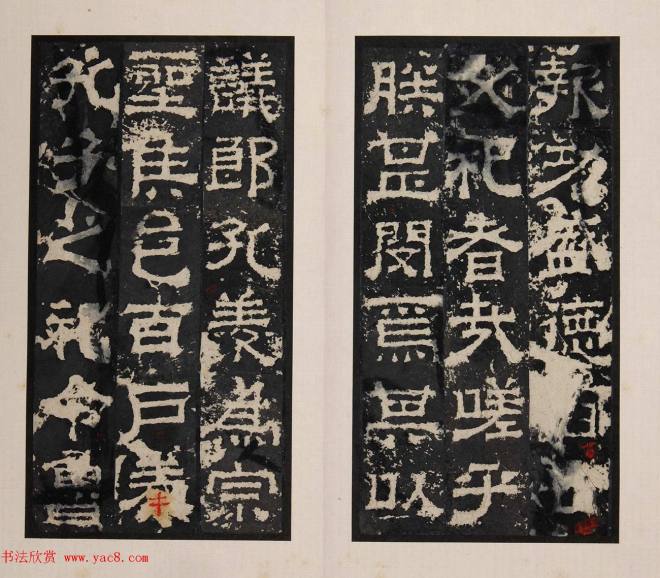 報功盛德百世
必祀者哉嗟乎
朕甚閔焉其以
議郎孔羨為宗
聖侯邑百戶奉
孔子之祀令魯
书法欣赏 www.yac8.com